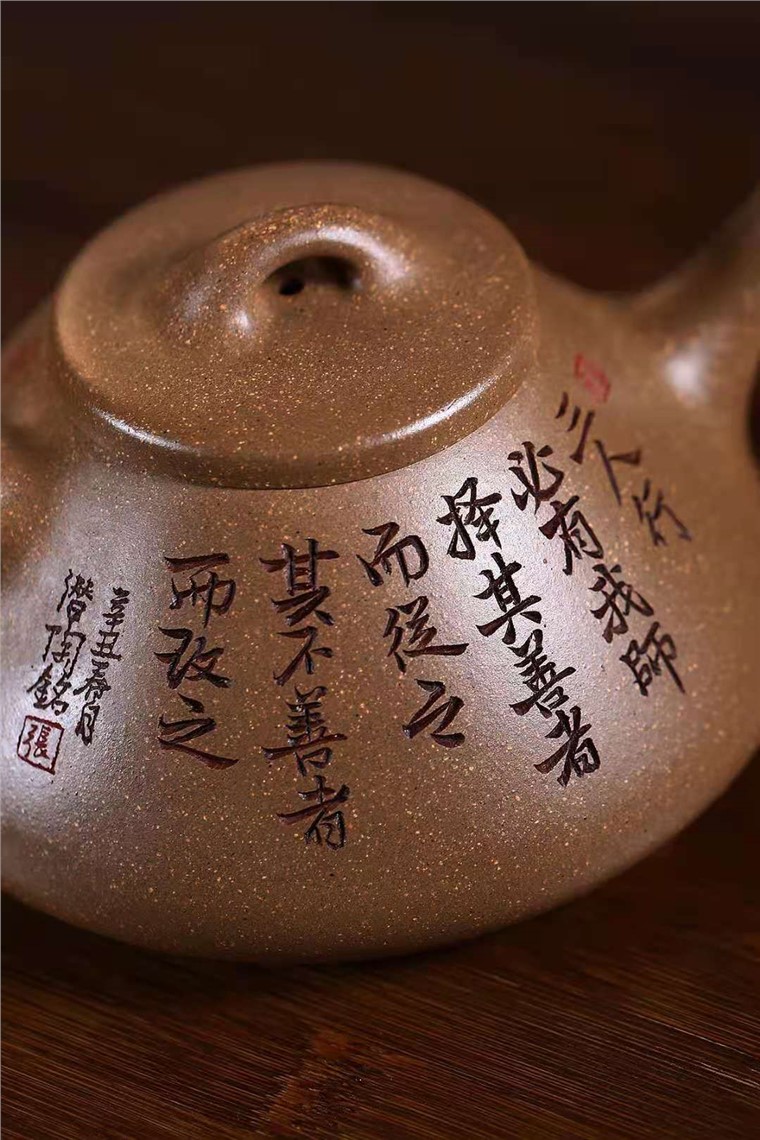 三人行
必有我師
择其善者
而從之
其不善者
而改之
辛丑春月
潛陶銘
張